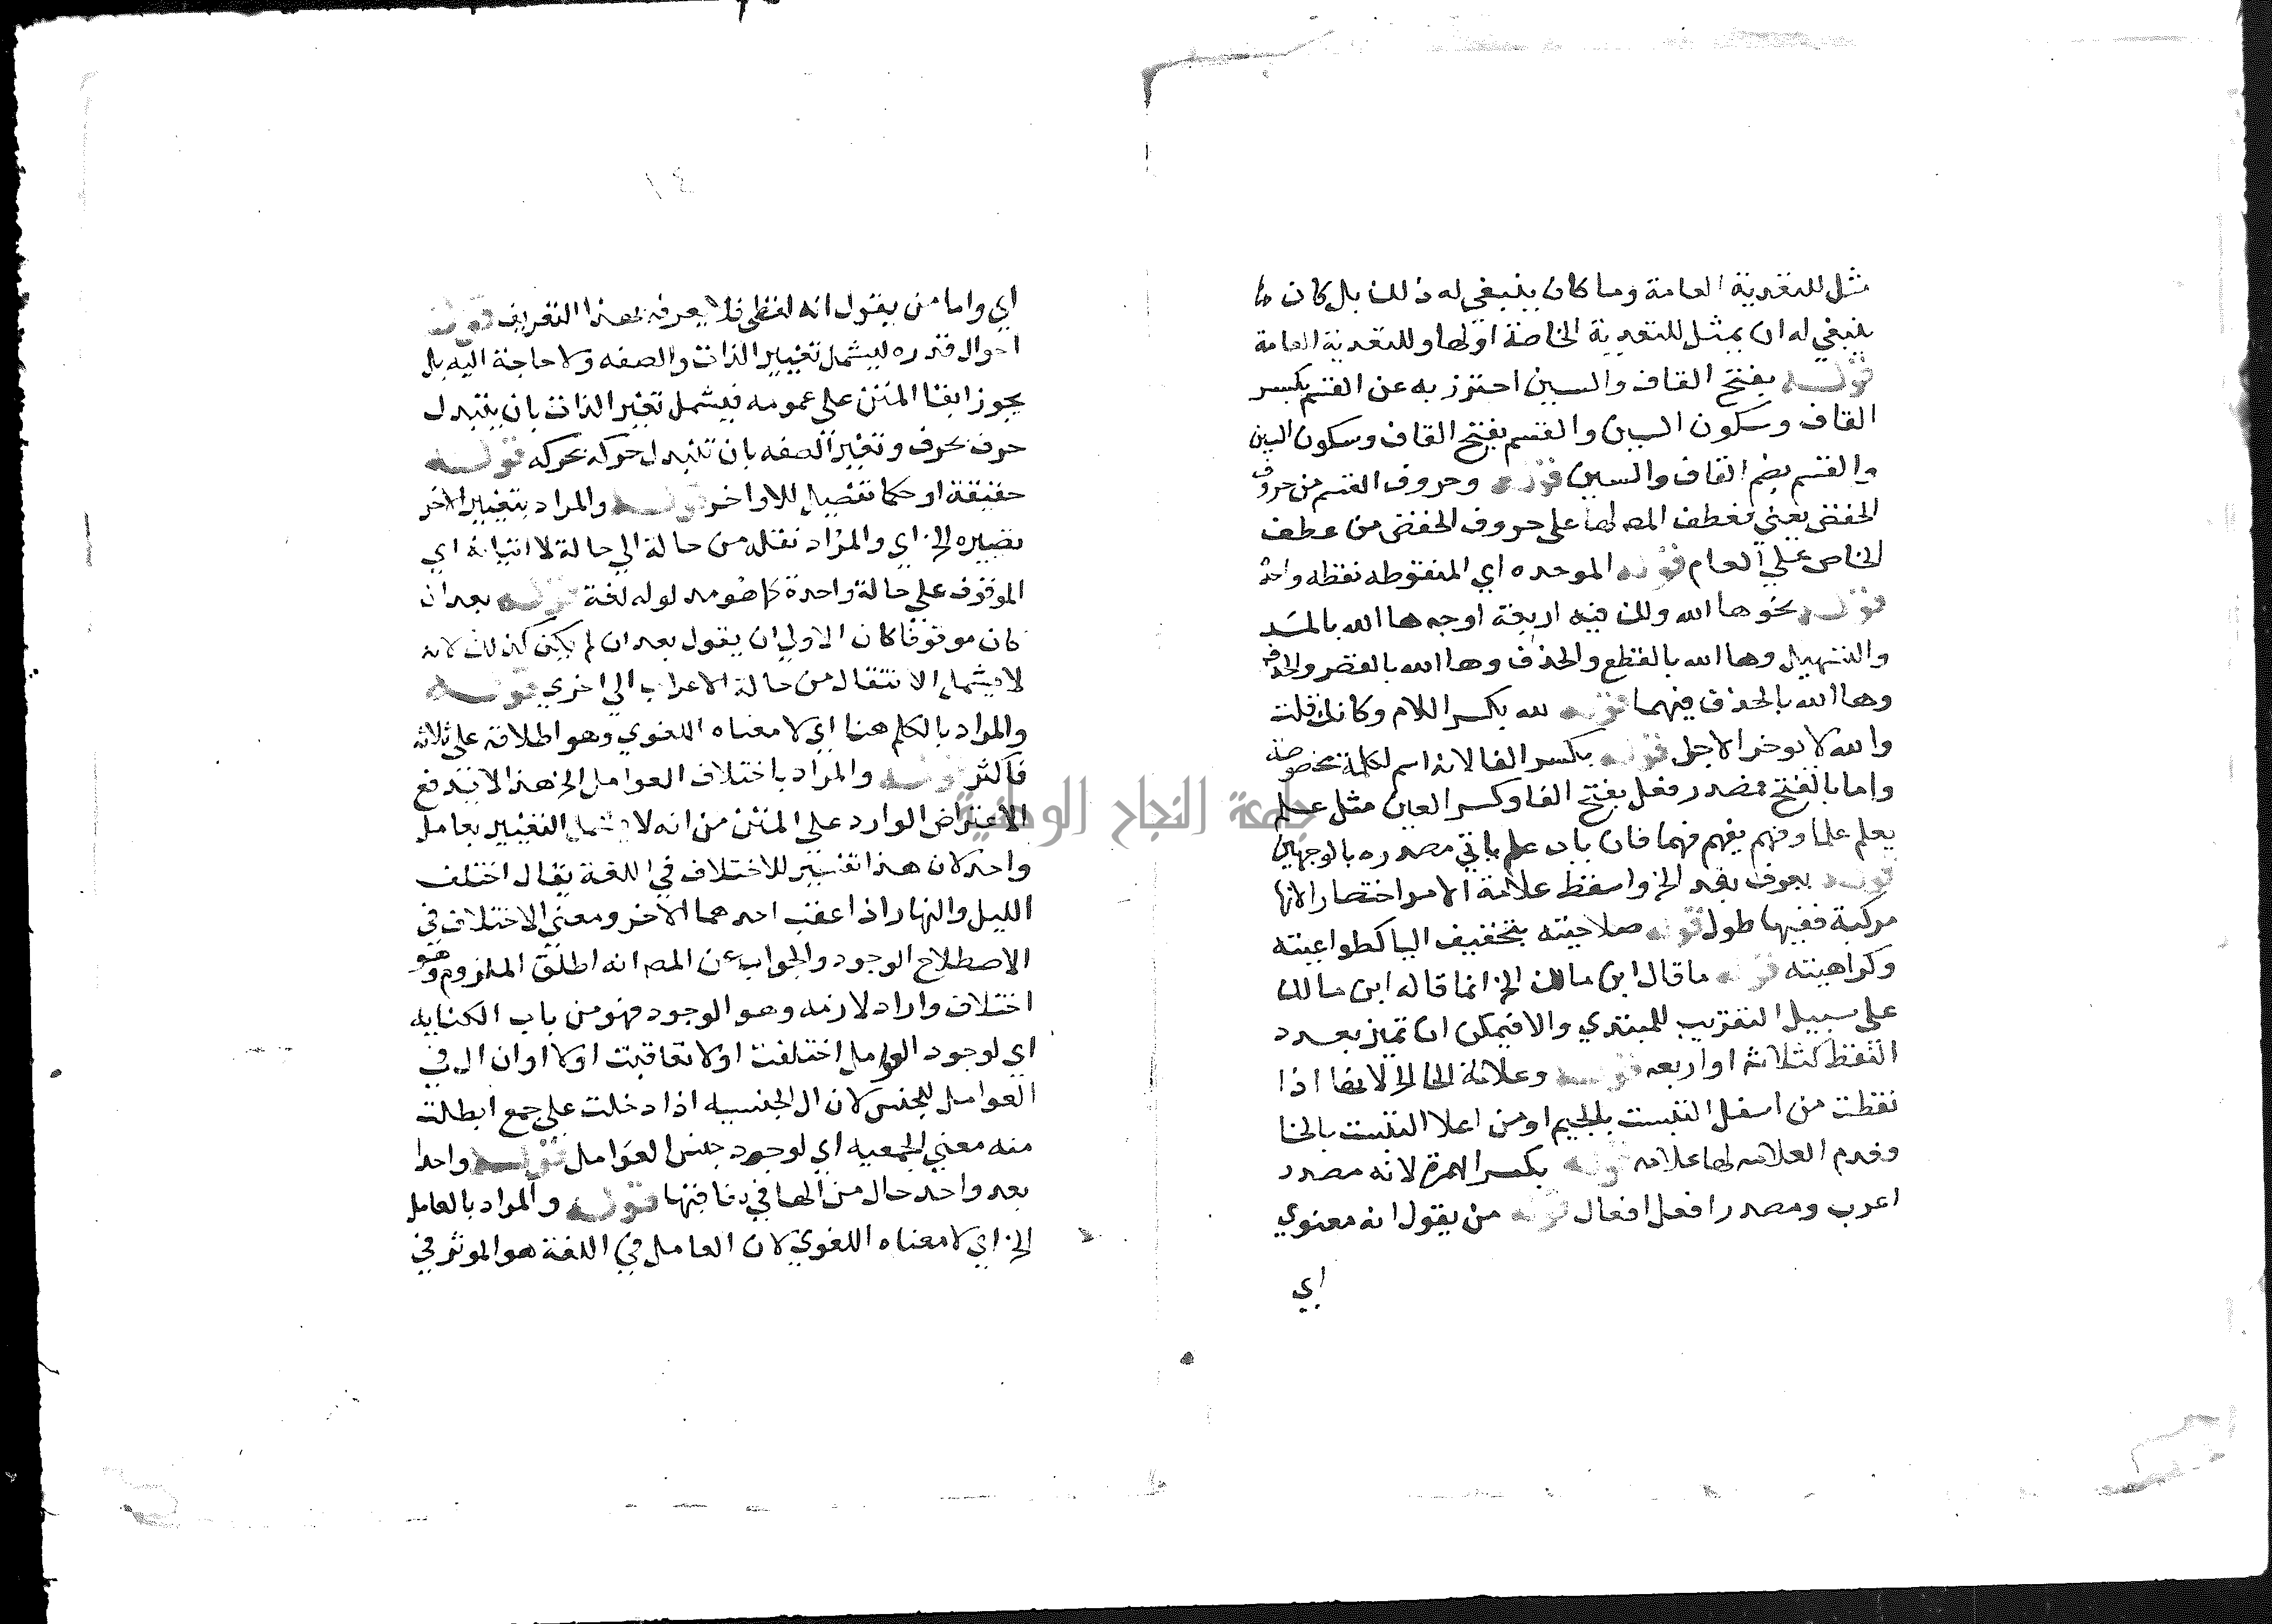 مثل للتعدية العامة وما كان ينبغي له ذلك بل كان
ينبغي له ان يمثل للتعدية الخاصة اولها وللتعدية العامة
قوله بفتح القاف والسين احترز به عن القسم بكسر
القاف وسكون السين والقسم بفتح القاف وسكون السين
والقسم بضم القاف والسين قوله وحروف القسم من حروف
الخفض يعني فعطف المصـ لها على حروف الخفض من عطف
الخاص علي العام قوله الموحده اي المنقوطه نقطه واحدة
قوله نحو ها الله ولك فيه اربعة اوجه ها الله بالمد
والتسهيل وها الله بالقطع والحذف وها الله بالقصر والحذف
وها الله بالحذف فيهما قوله لله بكسر اللام وكانك قلت
والله لا يوخر الاجل قوله بكسر الفا لانه اسم لكلمة مخصوصة
واما بالفتح فمصدر فعل بفتح الفا وكسر العين مثل علم
يعلم علما وفهم يفهم فهما فان باب علم ياتي مصدره بالوجهين
قوله بعرف بقد الخ واسقط علامة الامر اختصارا لانها
مركبة ففيها طول قوله صلاحيته بتخفيف اليا كطواعيته
وكراهيته قوله ما قال ابن مالك الخ انما قاله ابن مالك
على سبيل التقريب للمبتدي والا فيمكن ان تميز بعدد
النقط كثلاثة او اربعه قوله وعلامة الحا الخ لانها اذا
نقطت من اسفل التبست بالجيم او من اعلا التبست بالخا
وعدم العلامه لها علامه قوله بكسر الهمزة لانه مصدر
اعرب ومصدر افعل افعال قوله من يقول انه معنوي
اي
١٤
اي واما من يقول انه لفظي فلا يعرفه بهذا التعريف قوله
احوال قدره ليشمل تغيير الذات والصفه ولا حاجة اليه بل
يجوز ابقا المتن على عمومه فيشمل تغير الذات بان يتبدل
حرف بحرف وتغير الصفه بان تتبدل حركه بحركه قوله
حقيقة او حكما تفصيل للاواخر قوله والمراد بتغيير الاخر
تصييره الخ اي والمراد نقله من حالة الي حالة لا اتيانه اي
الموقوف على حالة واحدة كما هو مدلوله لغة قوله بعد ان
كان موقوفا كان الاولي ان يقول بعد ان لم يكن كذلك لانه
لا يشمل الانتقال من حالة الاعراب الي اخري قوله
والمراد بالكلم هنا اي لا معناه اللغوي وهو اطلاقه على ثلاثه
فاكثر قوله والمراد باختلاف العوامل الخ هذا لا يندفع
الاعتراض الوارد على المتن من انه لا يشمل التغيير بعامل
واحد لان هذا تفسير للاختلاف في اللغة يقال اختلف
الليل والنهار اذا اعقب احدهما الاخر ومعني الاختلاف في
الاصطلاح الوجود والجواب عن المصـ انه اطلق الملزوم وهو
اختلاف واراد لازمه وهو الوجود فهو من باب الكنايه
اي لوجود العوامل اختلفت او لا تعاقبت او لا او ان ال في
العوامل للجنس لان ال الجنسيه اذا دخلت على جمع ابطلت
منه معني الجمعيه اي لوجود جنس العوامل قوله واحدا
بعد واحد حال من الها في تعاقبها قوله والمراد بالعامل
الخ اي لا معناه اللغوي لان العامل في اللغة هو الموثر في
جامعة النجاح الوطنية